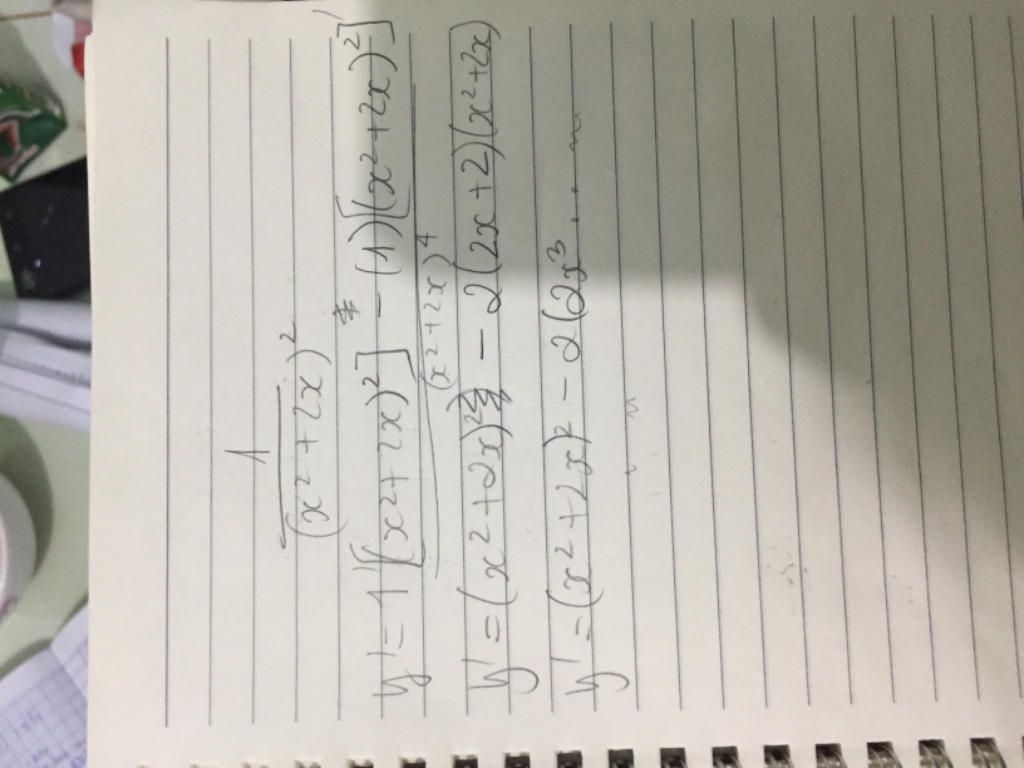 1
(x²+2x)²
y' = 1'[(x²+2x)²] - (1)[(x²+2x)²]'
(x²+2x)⁴
y' = (x²+2x)² - 2(2x+2)(x²+2x)
y' = (x²+2x)² - 2(2x³ ......